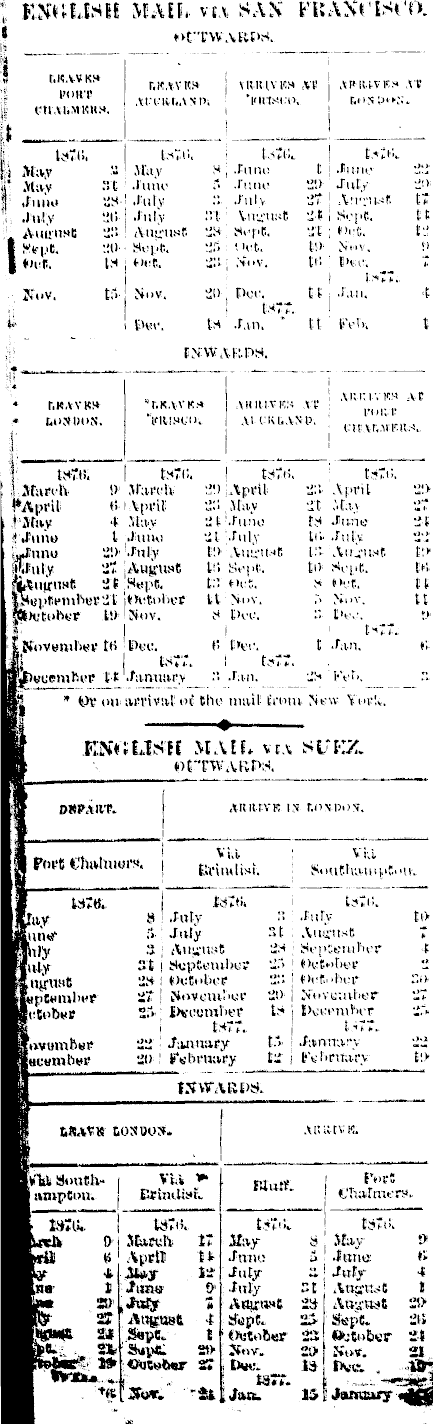 ENGLISH MAIL VIA SAN FRANCISCO.
OUTWARDS.
LEAVES PORT CHALMERS. LEAVES AUCKLAND. ARRIVES AT 'FRISCO. ARRIVES AT LONDON.
1876. 1876. 1876. 1876.
May 3 May 8 June 1 June 22
May 31 June 5 June 29 July 20
June 28 July 3 July 27 August 17
July 26 July 31 August 24 Sept. 14
August 23 August 28 Sept. 21 Oct. 12
Sept. 20 Sept. 25 Oct. 19 Nov. 9
Oct. 18 Oct. 23 Nov. 16 Dec. 7
1877.
Nov. 15 Nov. 20 Dec. 14 Jan. 4
1877.
Dec. 18 Jan. 11 Feb. 1
INWARDS.
LEAVES LONDON. *LEAVES 'FRISCO. ARRIVES AT AUCKLAND. ARRIVES AT PORT CHALMERS.
1876. 1876. 1876. 1876.
March 9 March 29 April 23 April 29
April 6 April 23 May 21 May 27
May 4 May 24 June 18 June 24
June 1 June 21 July 16 July 22
June 29 July 19 August 13 August 19
July 27 August 16 Sept. 10 Sept. 16
August 24 Sept. 13 Oct. 8 Oct. 14
September 21 October 11 Nov. 5 Nov. 11
October 19 Nov. 8 Dec. 3 Dec. 9
1877.
November 16 Dec. 6 Dec. 1 Jan. 6
1877. 1877.
December 14 January 3 Jan. 28 Feb. 3
* Or on arrival of the mail from New York.
ENGLISH MAIL VIA SUEZ.
OUTWARDS.
DEPART. ARRIVE IN LONDON.
Port Chalmers. Via Brindisi. Via Southampton.
1876. 1876. 1876.
May 8 July 3 July 10
June 5 July 31 August 7
July 3 August 28 September 4
July 31 September 25 October 2
August 28 October 23 October 30
September 27 November 20 November 27
October 25 December 18 December 25
1877. 1877.
November 22 January 15 January 22
December 20 February 12 February 19
INWARDS.
LEAVE LONDON. ARRIVE.
Via Southampton. Via Brindisi. Bluff. Port Chalmers.
1876. 1876. 1876. 1876.
March 9 March 17 May 8 May 9
April 6 April 14 June 5 June 6
May 4 May 12 July 3 July 4
June 1 June 9 July 31 August 1
June 29 July 7 August 28 August 29
July 27 August 4 Sept. 25 Sept. 26
August 24 Sept. 1 October 23 October 24
Sept. 21 Sept. 29 Nov. 20 Nov. 21
October 19 October 27 Dec. 18 Dec.
1877.
16 Nov. 24 Jan. 15 January